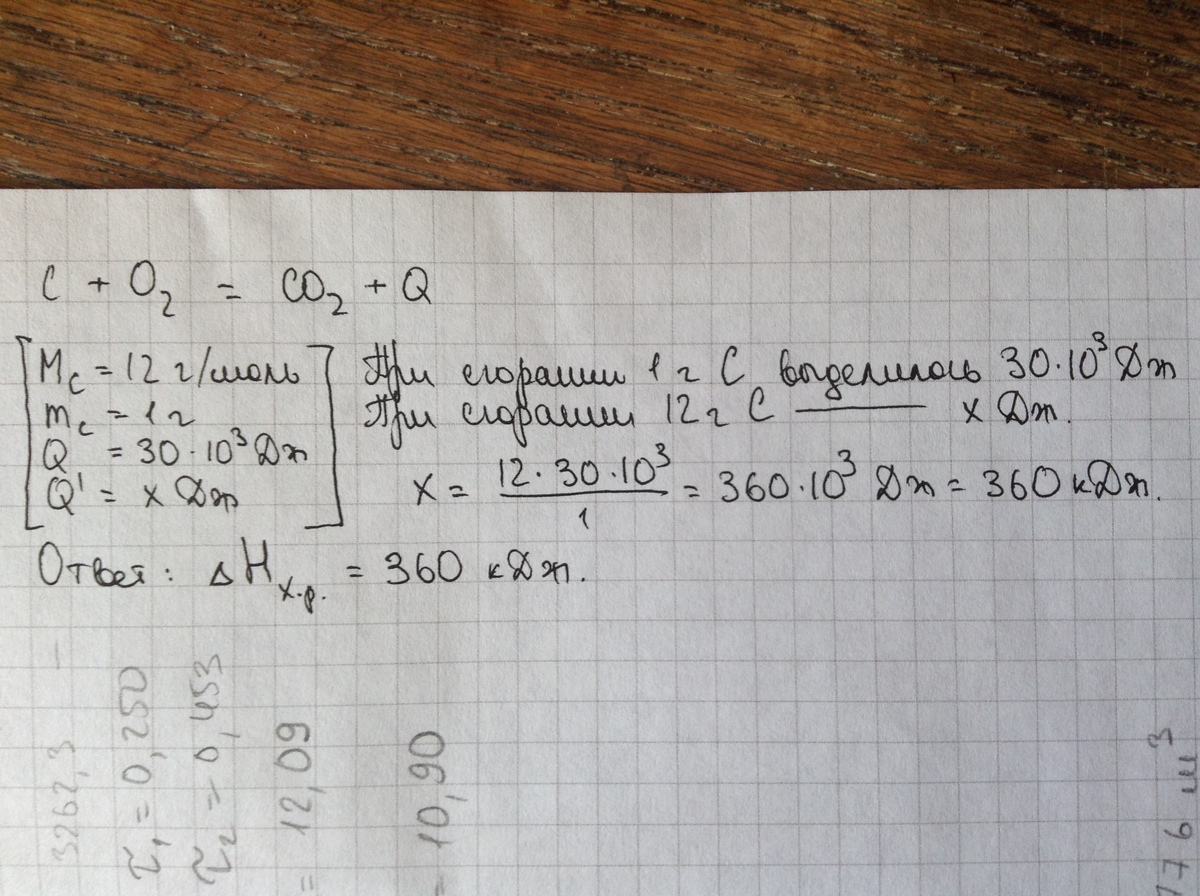 C + O₂ = CO₂ + Q
M_C = 12 г/моль
m_C = 1 г
Q = 30·10³ Дж
Q' = x Дж
При сгорании 1 г С выделилось 30·10³ Дж
При сгорании 12 г С ——— x Дж.
x = 12·30·10³ / 1 = 360·10³ Дж = 360 кДж.
Ответ: ΔH х.р. = 360 кДж.
3262,3
τ₁ = 0,250
τ₂ = 0,453
= 12,09
= 10,90